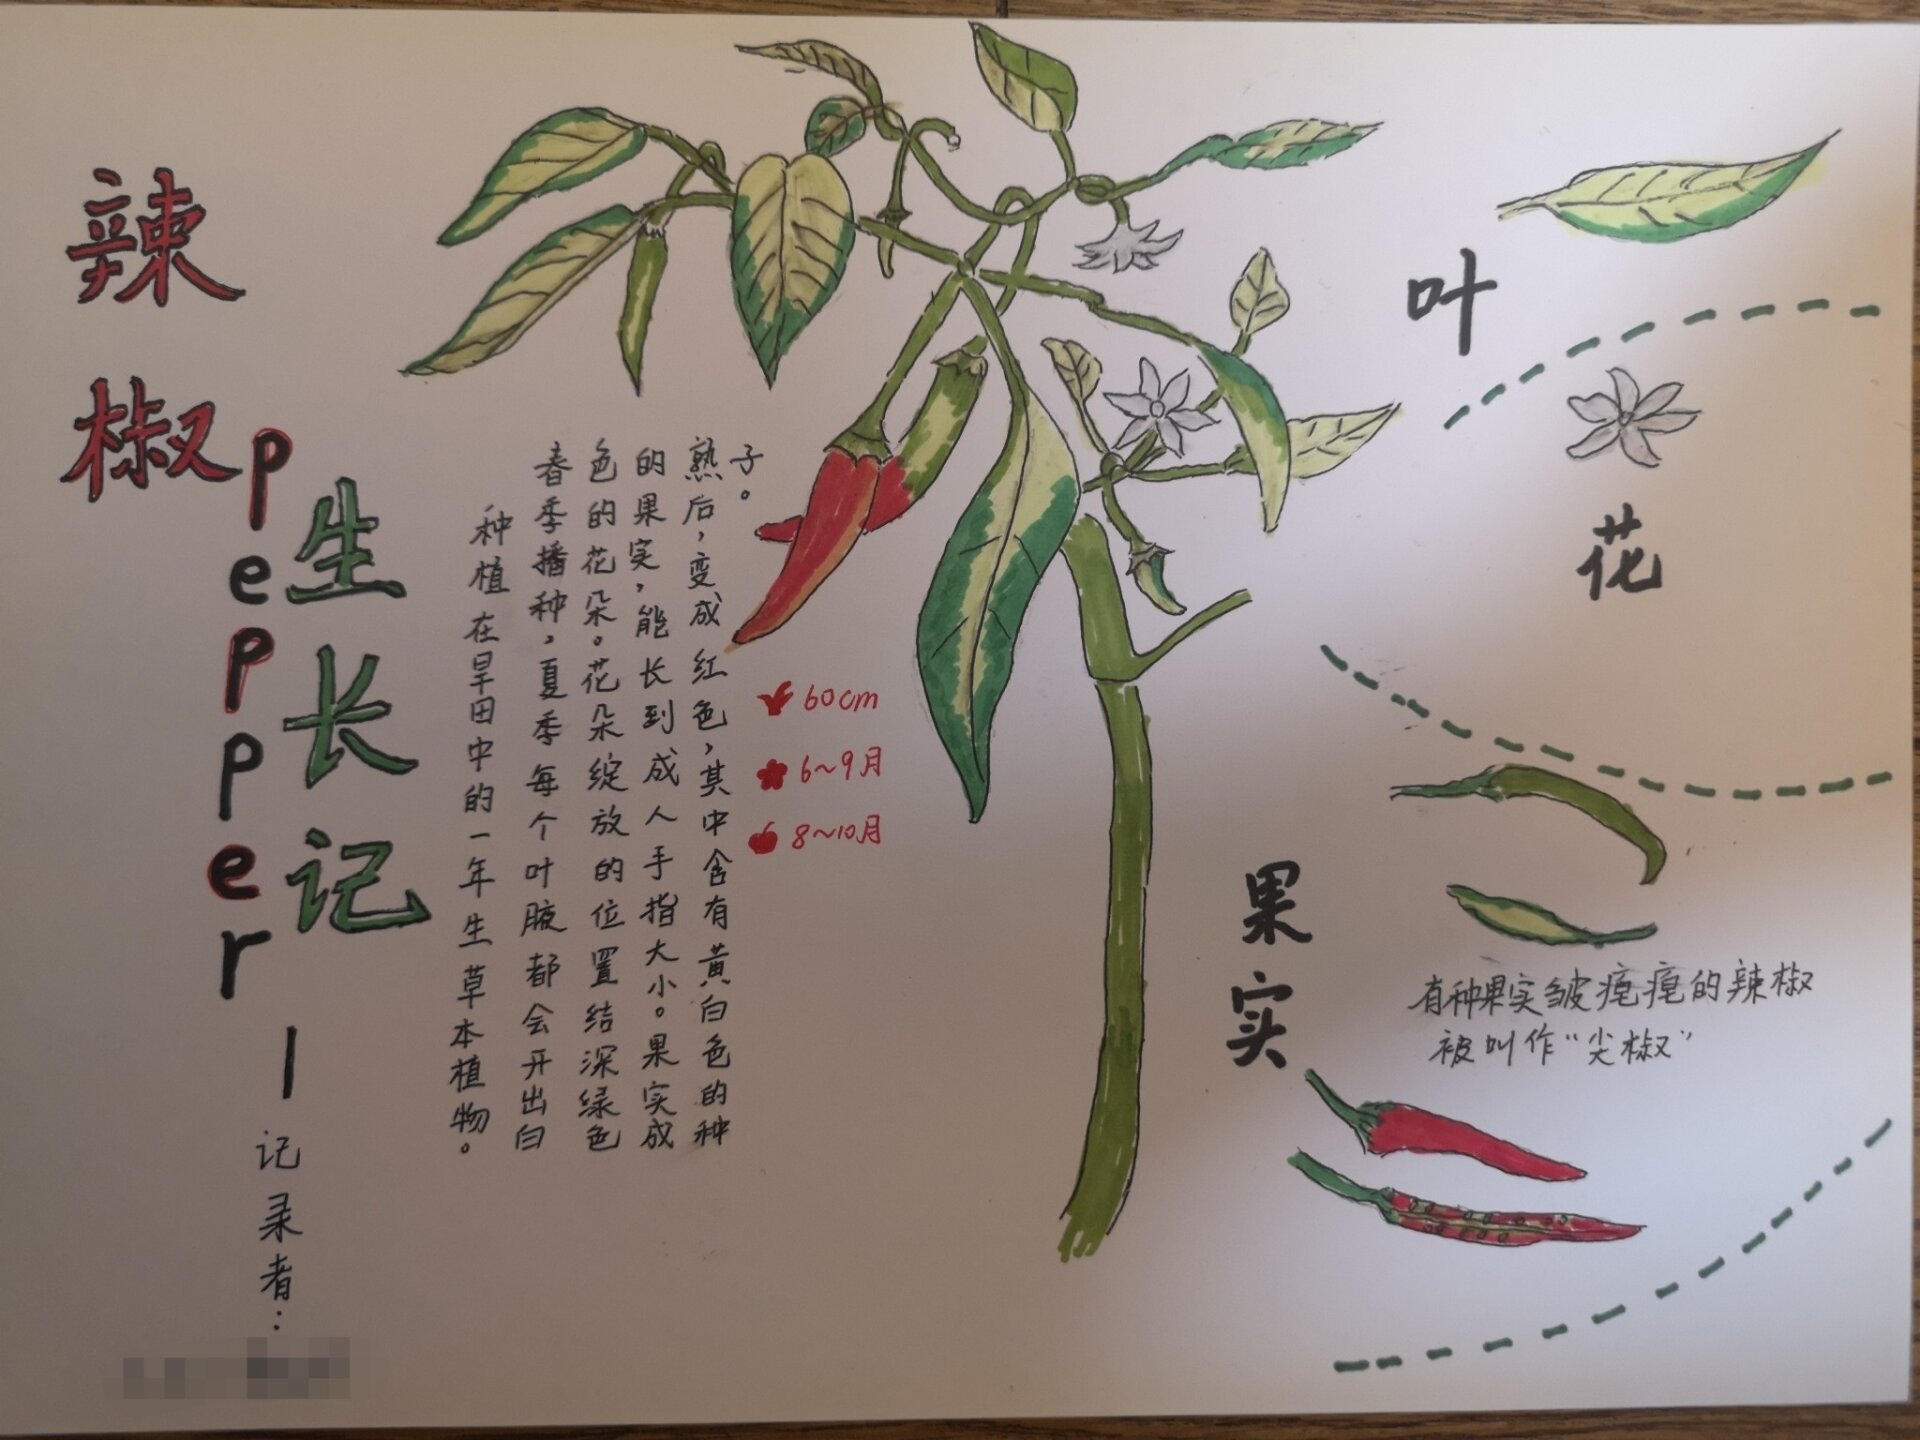 辣椒
pepper
生长记
—记录者：
种植在旱田中的一年生草本植物。
春季播种，夏季每个叶腋都会开出白
色的花朵。花朵绽放的位置结深绿色
的果实，能长到成人手指大小。果实成
熟后，变成红色，其中含有黄白色的种
子。
60cm
6~9月
8~10月
叶
花
果实
有种果实皱疱疱的辣椒
被叫作“尖椒”